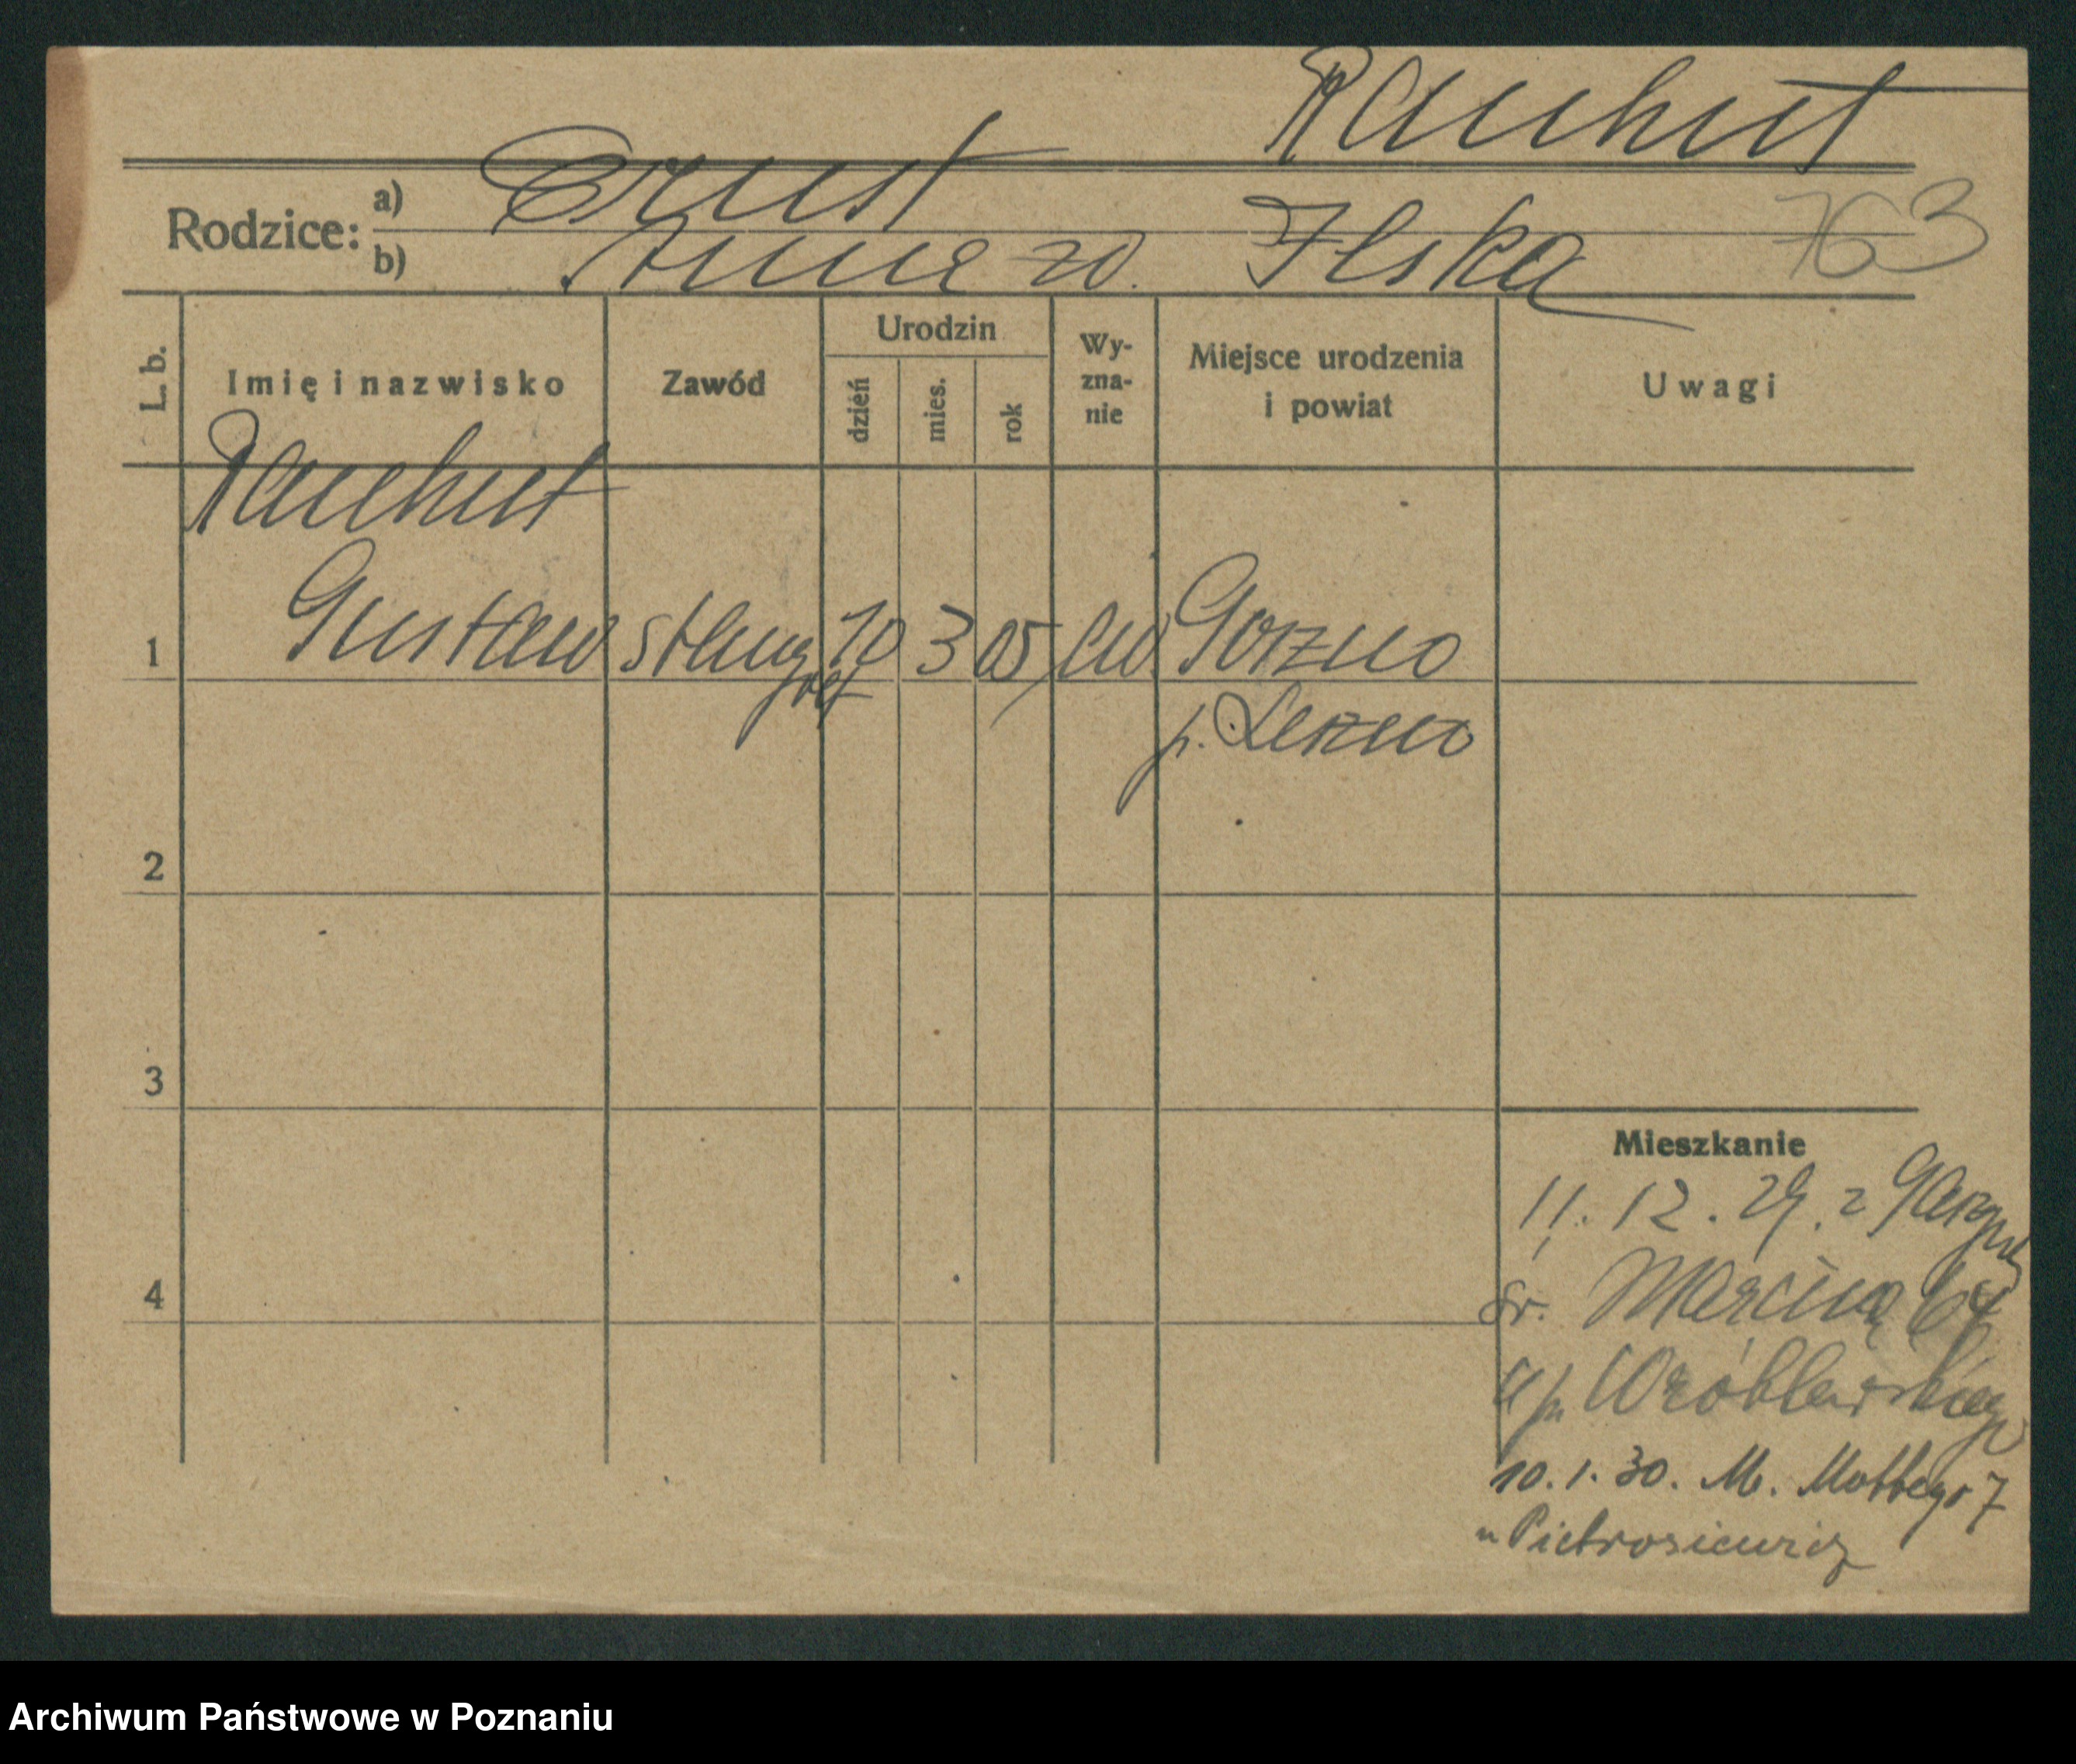 Rauhut
Rodzice: a) Ernst
b) Anna zd. Ilska 763
L. b. Imię i nazwisko Zawód Urodzin dzień mies. rok Wy-zna-nie Miejsce urodzenia i powiat Uwagi
Rauhut
1 Gustaw 10 3 05 ew Gorzno
p. Leszno
2
3
Mieszkanie
11. 12. 29. z
4 św. Marcina 64
u p. Wróblewskiego
10. 1. 30. M. Mottego 7
u Pietrosiewicz
Archiwum Państwowe w Poznaniu